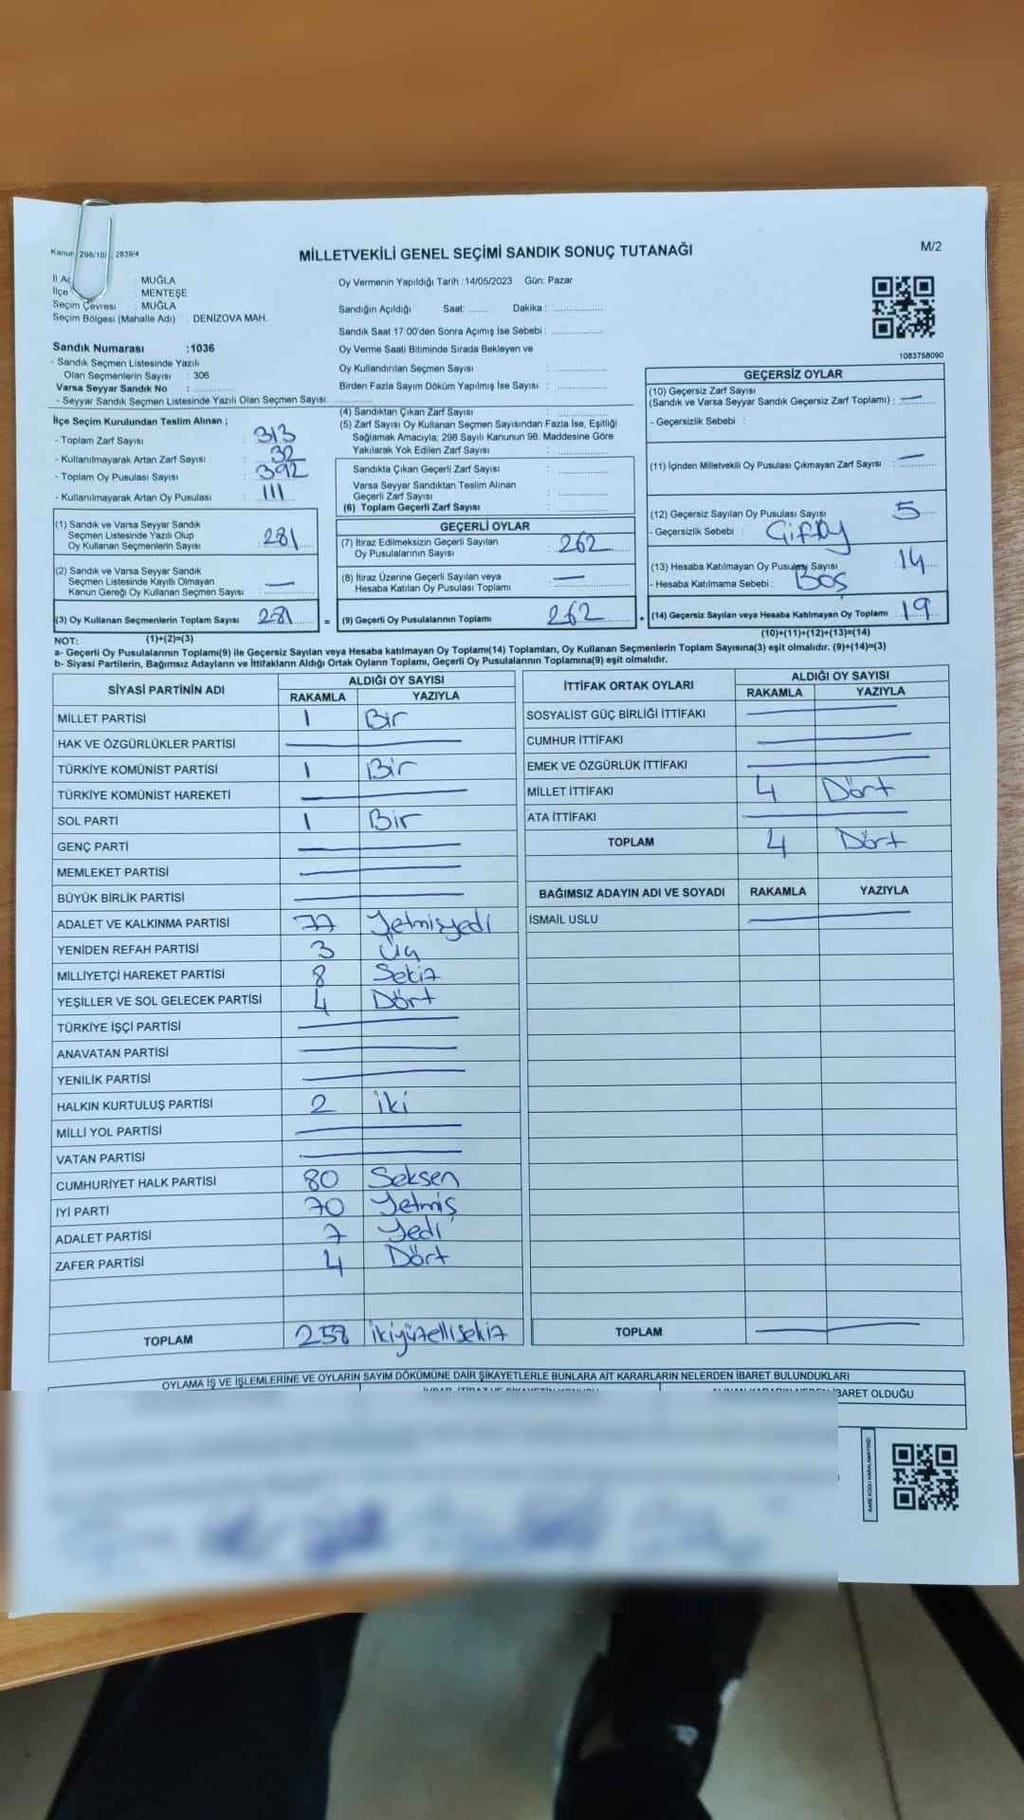 Kanun 298/10 , 2839/4
MİLLETVEKİLİ GENEL SEÇİMİ SANDIK SONUÇ TUTANAĞI
M/2
: MUĞLA
İlçe : MENTEŞE
Seçim Çevresi : MUĞLA
Seçim Bölgesi (Mahalle Adı) : DENİZOVA MAH.
Sandık Numarası :1036
- Sandık Seçmen Listesinde Yazılı
Olan Seçmenlerin Sayısı : 306
Varsa Seyyar Sandık No :
- Seyyar Sandık Seçmen Listesinde Yazılı Olan Seçmen Sayısı:
Oy Vermenin Yapıldığı Tarih : 14/05/2023 Gün: Pazar
Sandığın Açıldığı Saat: Dakika :
Sandık Saat 17:00'den Sonra Açımış İse Sebebi :
Oy Verme Saati Bitiminde Sırada Bekleyen ve
Oy Kullandırılan Seçmen Sayısı :
Birden Fazla Sayım Döküm Yapılmış İse Sayısı :
1083758090
İlçe Seçim Kurulundan Teslim Alınan ;
- Toplam Zarf Sayısı : 313
- Kullanılmayarak Artan Zarf Sayısı : 32
- Toplam Oy Pusulası Sayısı : 392
- Kullanılmayarak Artan Oy Pusulası : 111
(1) Sandık ve Varsa Seyyar Sandık
Seçmen Listesinde Yazılı Olup
Oy Kullanan Seçmenlerin Sayısı : 281
(2) Sandık ve Varsa Seyyar Sandık
Seçmen Listesinde Kayıtlı Olmayan
Kanun Gereği Oy Kullanan Seçmen Sayısı : —
(3) Oy Kullanan Seçmenlerin Toplam Sayısı 281 =
(4) Sandıktan Çıkan Zarf Sayısı :
(5) Zarf Sayısı Oy Kullanan Seçmen Sayısından Fazla İse, Eşitliği
Sağlamak Amacıyla; 298 Sayılı Kanunun 98. Maddesine Göre
Yakılarak Yok Edilen Zarf Sayısı :
Sandıkta Çıkan Geçerli Zarf Sayısı :
Varsa Seyyar Sandıktan Teslim Alınan
Geçerli Zarf Sayısı :
(6) Toplam Geçerli Zarf Sayısı :
GEÇERLİ OYLAR
(7) İtiraz Edilmeksizin Geçerli Sayılan
Oy Pusulalarının Sayısı : 262
(8) İtiraz Üzerine Geçerli Sayılan veya
Hesaba Katılan Oy Pusulası Toplamı : —
(9) Geçerli Oy Pusulalarının Toplamı 262 +
GEÇERSİZ OYLAR
(10) Geçersiz Zarf Sayısı
(Sandık ve Varsa Seyyar Sandık Geçersiz Zarf Toplamı) : —
- Geçersizlik Sebebi :
(11) İçinden Milletvekili Oy Pusulası Çıkmayan Zarf Sayısı : —
(12) Geçersiz Sayılan Oy Pusulası Sayısı : 5
- Geçersizlik Sebebi :
(13) Hesaba Katılmayan Oy Pusulası Sayısı : 14
- Hesaba Katılmama Sebebi : Boş
(14) Geçersiz Sayılan veya Hesaba Katılmayan Oy Toplamı : 19
NOT: (1)+(2)=(3)
(10)+(11)+(12)+(13)=(14)
a- Geçerli Oy Pusulalarının Toplamı(9) ile Geçersiz Sayılan veya Hesaba katılmayan Oy Toplamı(14) Toplamları, Oy Kullanan Seçmenlerin Toplam Sayısına(3) eşit olmalıdır. (9)+(14)=(3)
b- Siyasi Partilerin, Bağımsız Adayların ve İttifakların Aldığı Ortak Oyların Toplamı, Geçerli Oy Pusulalarının Toplamına(9) eşit olmalıdır.
SİYASİ PARTİNİN ADI ALDIĞI OY SAYISI
RAKAMLA YAZIYLA
MİLLET PARTİSİ 1 Bir
HAK VE ÖZGÜRLÜKLER PARTİSİ —
TÜRKİYE KOMÜNİST PARTİSİ 1 Bir
TÜRKİYE KOMÜNİST HAREKETİ —
SOL PARTİ 1 Bir
GENÇ PARTİ —
MEMLEKET PARTİSİ —
BÜYÜK BİRLİK PARTİSİ —
ADALET VE KALKINMA PARTİSİ 77 Yetmişyedi
YENİDEN REFAH PARTİSİ 3 Üç
MİLLİYETÇİ HAREKET PARTİSİ 8 Sekiz
YEŞİLLER VE SOL GELECEK PARTİSİ 4 Dört
TÜRKİYE İŞÇİ PARTİSİ —
ANAVATAN PARTİSİ —
YENİLİK PARTİSİ —
HALKIN KURTULUŞ PARTİSİ 2 iki
MİLLİ YOL PARTİSİ —
VATAN PARTİSİ —
CUMHURİYET HALK PARTİSİ 80 Seksen
İYİ PARTİ 70 Yetmiş
ADALET PARTİSİ 7 Yedi
ZAFER PARTİSİ 4 Dört
TOPLAM 258 ikiyüzellisekiz
İTTİFAK ORTAK OYLARI ALDIĞI OY SAYISI
RAKAMLA YAZIYLA
SOSYALİST GÜÇ BİRLİĞİ İTTİFAKI —
CUMHUR İTTİFAKI —
EMEK VE ÖZGÜRLÜK İTTİFAKI —
MİLLET İTTİFAKI 4 Dört
ATA İTTİFAKI —
TOPLAM 4 Dört
BAĞIMSIZ ADAYIN ADI VE SOYADI RAKAMLA YAZIYLA
İSMAİL USLU —
TOPLAM —
OYLAMA İŞ VE İŞLEMLERİNE VE OYLARIN SAYIM DÖKÜMÜNE DAİR ŞİKAYETLERLE BUNLARA AİT KARARLARIN NELERDEN İBARET BULUNDUKLARI
İBARET OLDUĞU